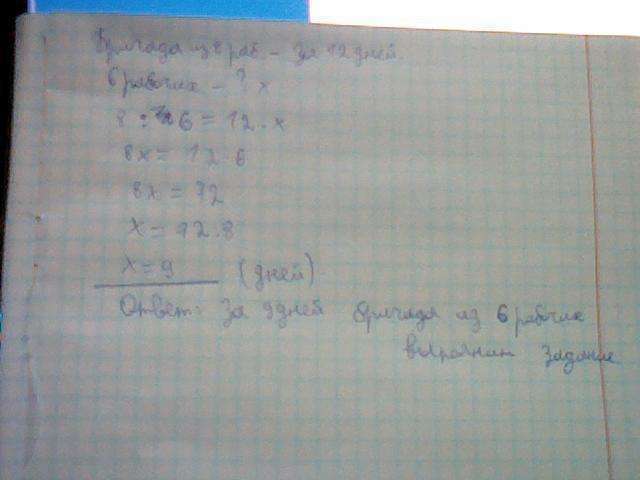 Бригада из 8 раб. – за 12 дней.
6 рабочих – ? x
8 : 6 = 12 · x
8x = 12 · 6
8x = 72
x = 72 : 8
x = 9 (дней)
Ответ: за 9 дней бригада из 6 рабочих
выполнит задание